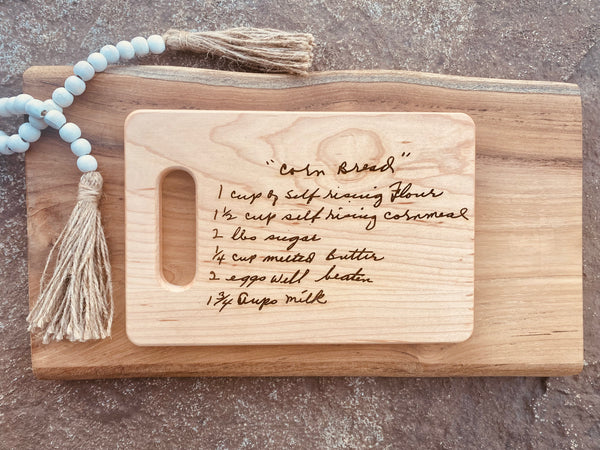 "Corn Bread"
1 cup of Self rising Flour
1 1/2 cup self rising cornmeal
2 lbs sugar
1/4 cup melted butter
2 eggs well beaten
1 3/4 cups milk